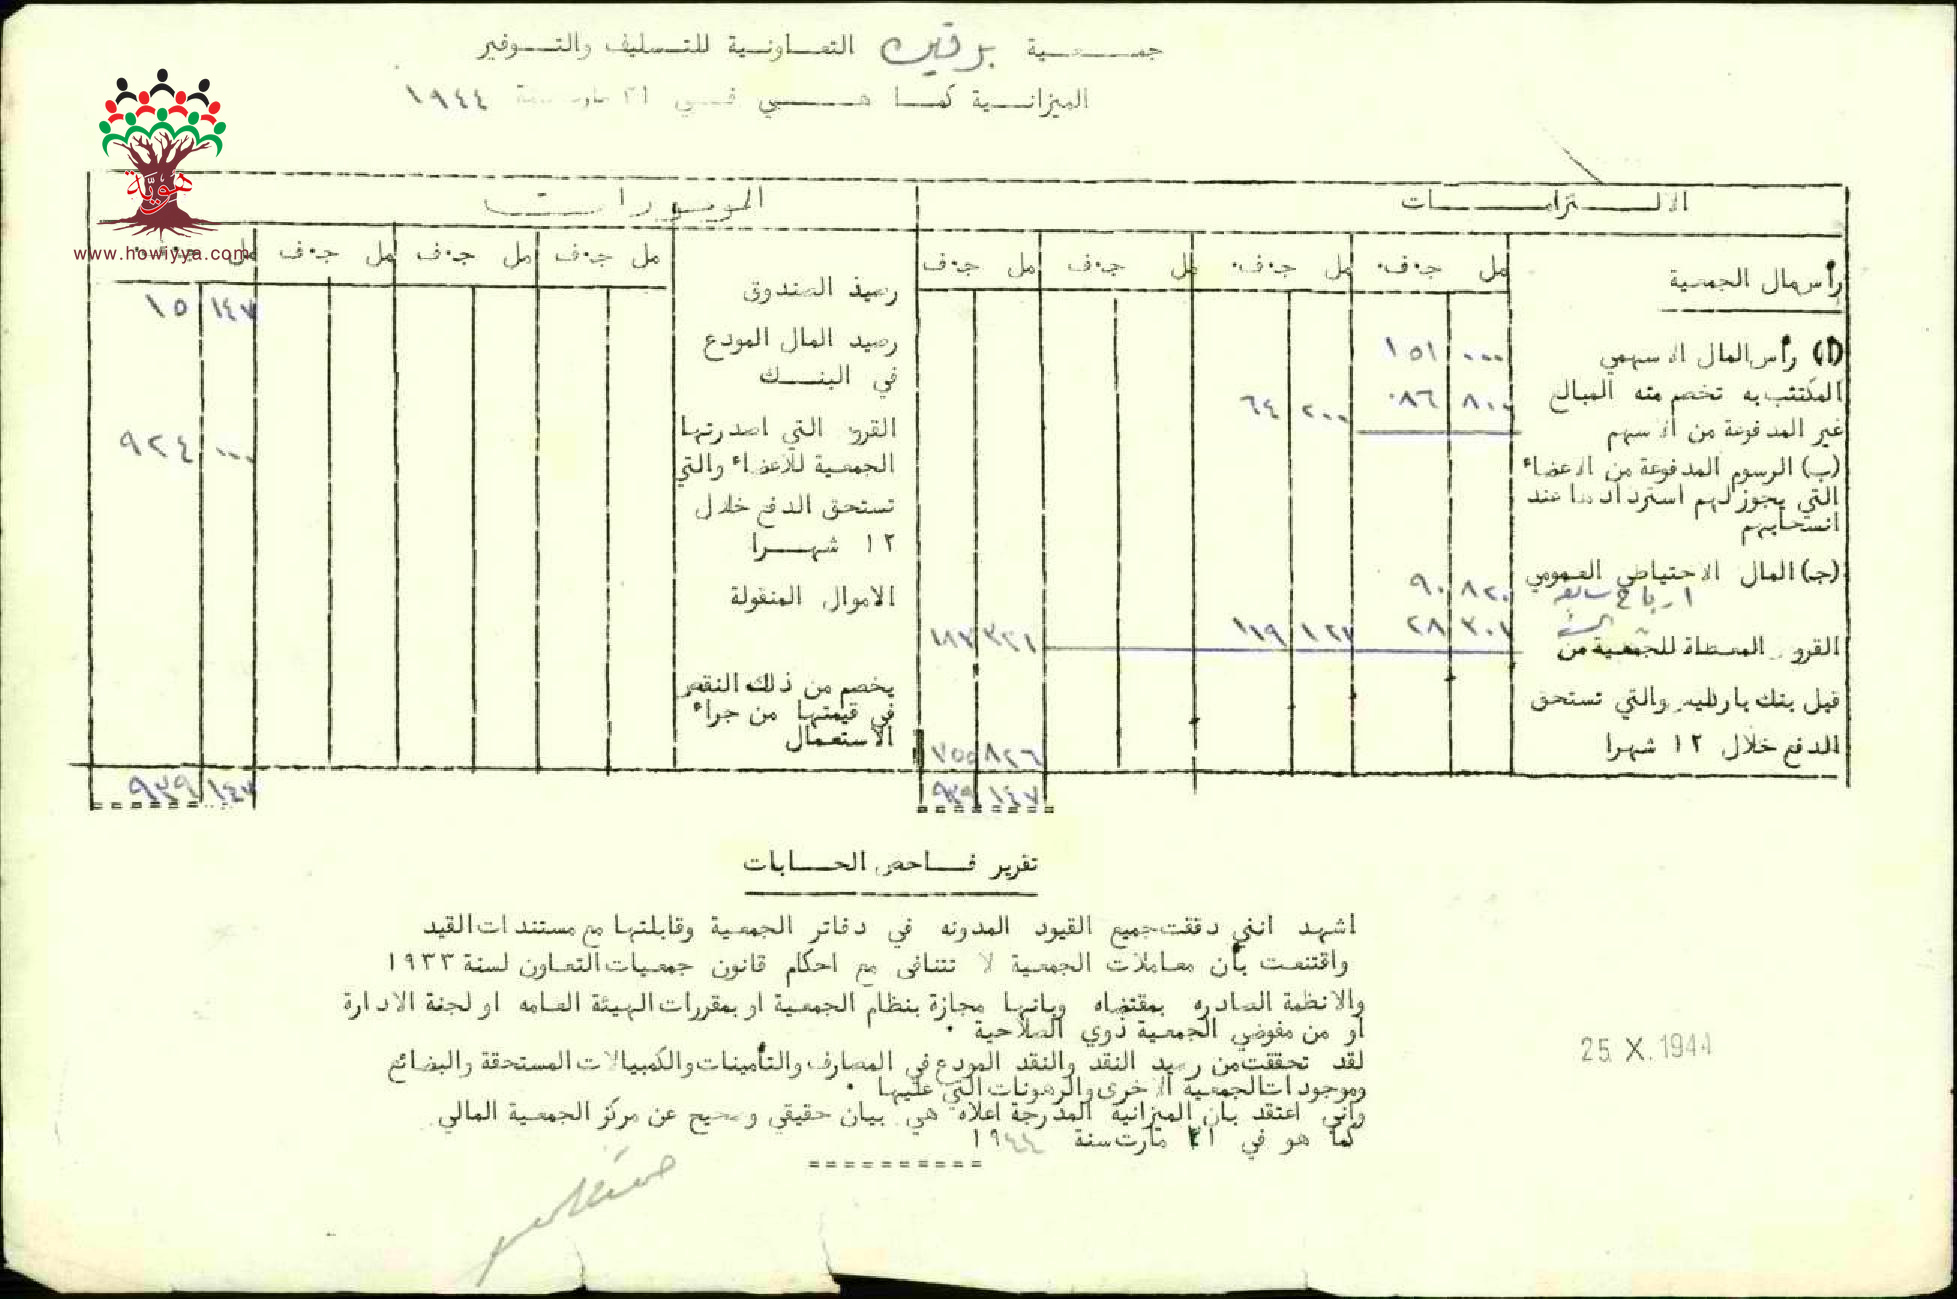 جمعية برقين التعاونية للتسليف والتوفير
الميزانية كما هي في ٣١ مارت سنة ١٩٤٤
هويّة
www.howiyya.com
الالتزامات
مل ج.ف. مل ج.ف. مل ج.ف مل ج.ف
رأس مال الجمعية
(ا) رأس المال الاسهمي ٠٠٠ ١٥١
المكتتب به تخصم منه المبالغ ٨٠٠ ٠٨٦ ٢٠٠ ٦٤
غير المدفوعة من الاسهم
(ب) الرسوم المدفوعة من الاعضاء
التي يجوز لهم استردادها عند
انسحابهم
(جـ) المال الاحتياطي العمومي ٨٢٠ ٩٠
ارباح سنة
٣٠١ ٢٨ ١٢١ ١١٩ ٣٢١ ١٨٣
القروض المعطاة للجمعية من
قبل بنك باركليس والتي تستحق
الدفع خلال ١٢ شهرا ٨٢٦ ٧٥٥
١٤٧ ٩٣٩
الموجودات
مل ج.ف مل ج.ف مل ج.ف مل
رصيد الصندوق ١٤٧ ١٥
رصيد المال المودع
في البنك
القروض التي اصدرتها ٠٠٠ ٩٢٤
الجمعية للاعضاء والتي
تستحق الدفع خلال
١٢ شهرا
الاموال المنقولة
يخصم من ذلك النقص
في قيمتها من جراء
الاستعمال
١٤٧ ٩٣٩
تقرير فاحص الحسابات
اشهد انني دققت جميع القيود المدونه في دفاتر الجمعية وقابلتها مع مستندات القيد
واقتنعت بأن معاملات الجمعية لا تتنافى مع احكام قانون جمعيات التعاون لسنة ١٩٣٣
والانظمة الصادره بمقتضاه وبانها مجازة بنظام الجمعية او بمقررات الهيئة العامه او لجنة الادارة
او من مفوضي الجمعية ذوي الصلاحية .
لقد تحققت من رصيد النقد والنقد المودع في المصارف والتأمينات والكمبيالات المستحقة والبضائع
وموجودات الجمعية الاخرى والرهونات التي عليها .
وأني اعتقد بأن الميزانية المدرجة اعلاه هي بيان حقيقي وصحيح عن مركز الجمعية المالي
كما هو في ٣١ مارت سنة ١٩٤٤
25. X. 1944